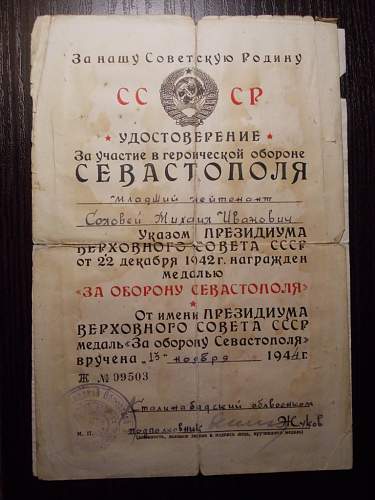 За нашу Советскую Родину
СССР
УДОСТОВЕРЕНИЕ
За участие в героической обороне
СЕВАСТОПОЛЯ
Младший лейтенант
Соловей Михаил Иванович
Указом ПРЕЗИДИУМА
ВЕРХОВНОГО СОВЕТА СССР
от 22 декабря 1942 г. награжден
медалью
«ЗА ОБОРОНУ СЕВАСТОПОЛЯ»
От имени ПРЕЗИДИУМА
ВЕРХОВНОГО СОВЕТА СССР
медаль «За оборону Севастополя»
вручена „13" ноября 1944 г.
Ж № 09503
Сталинабадский облвоенком
подполковник Жуков
М. П. (должность, воинское звание и подпись лица, вручившего медаль)